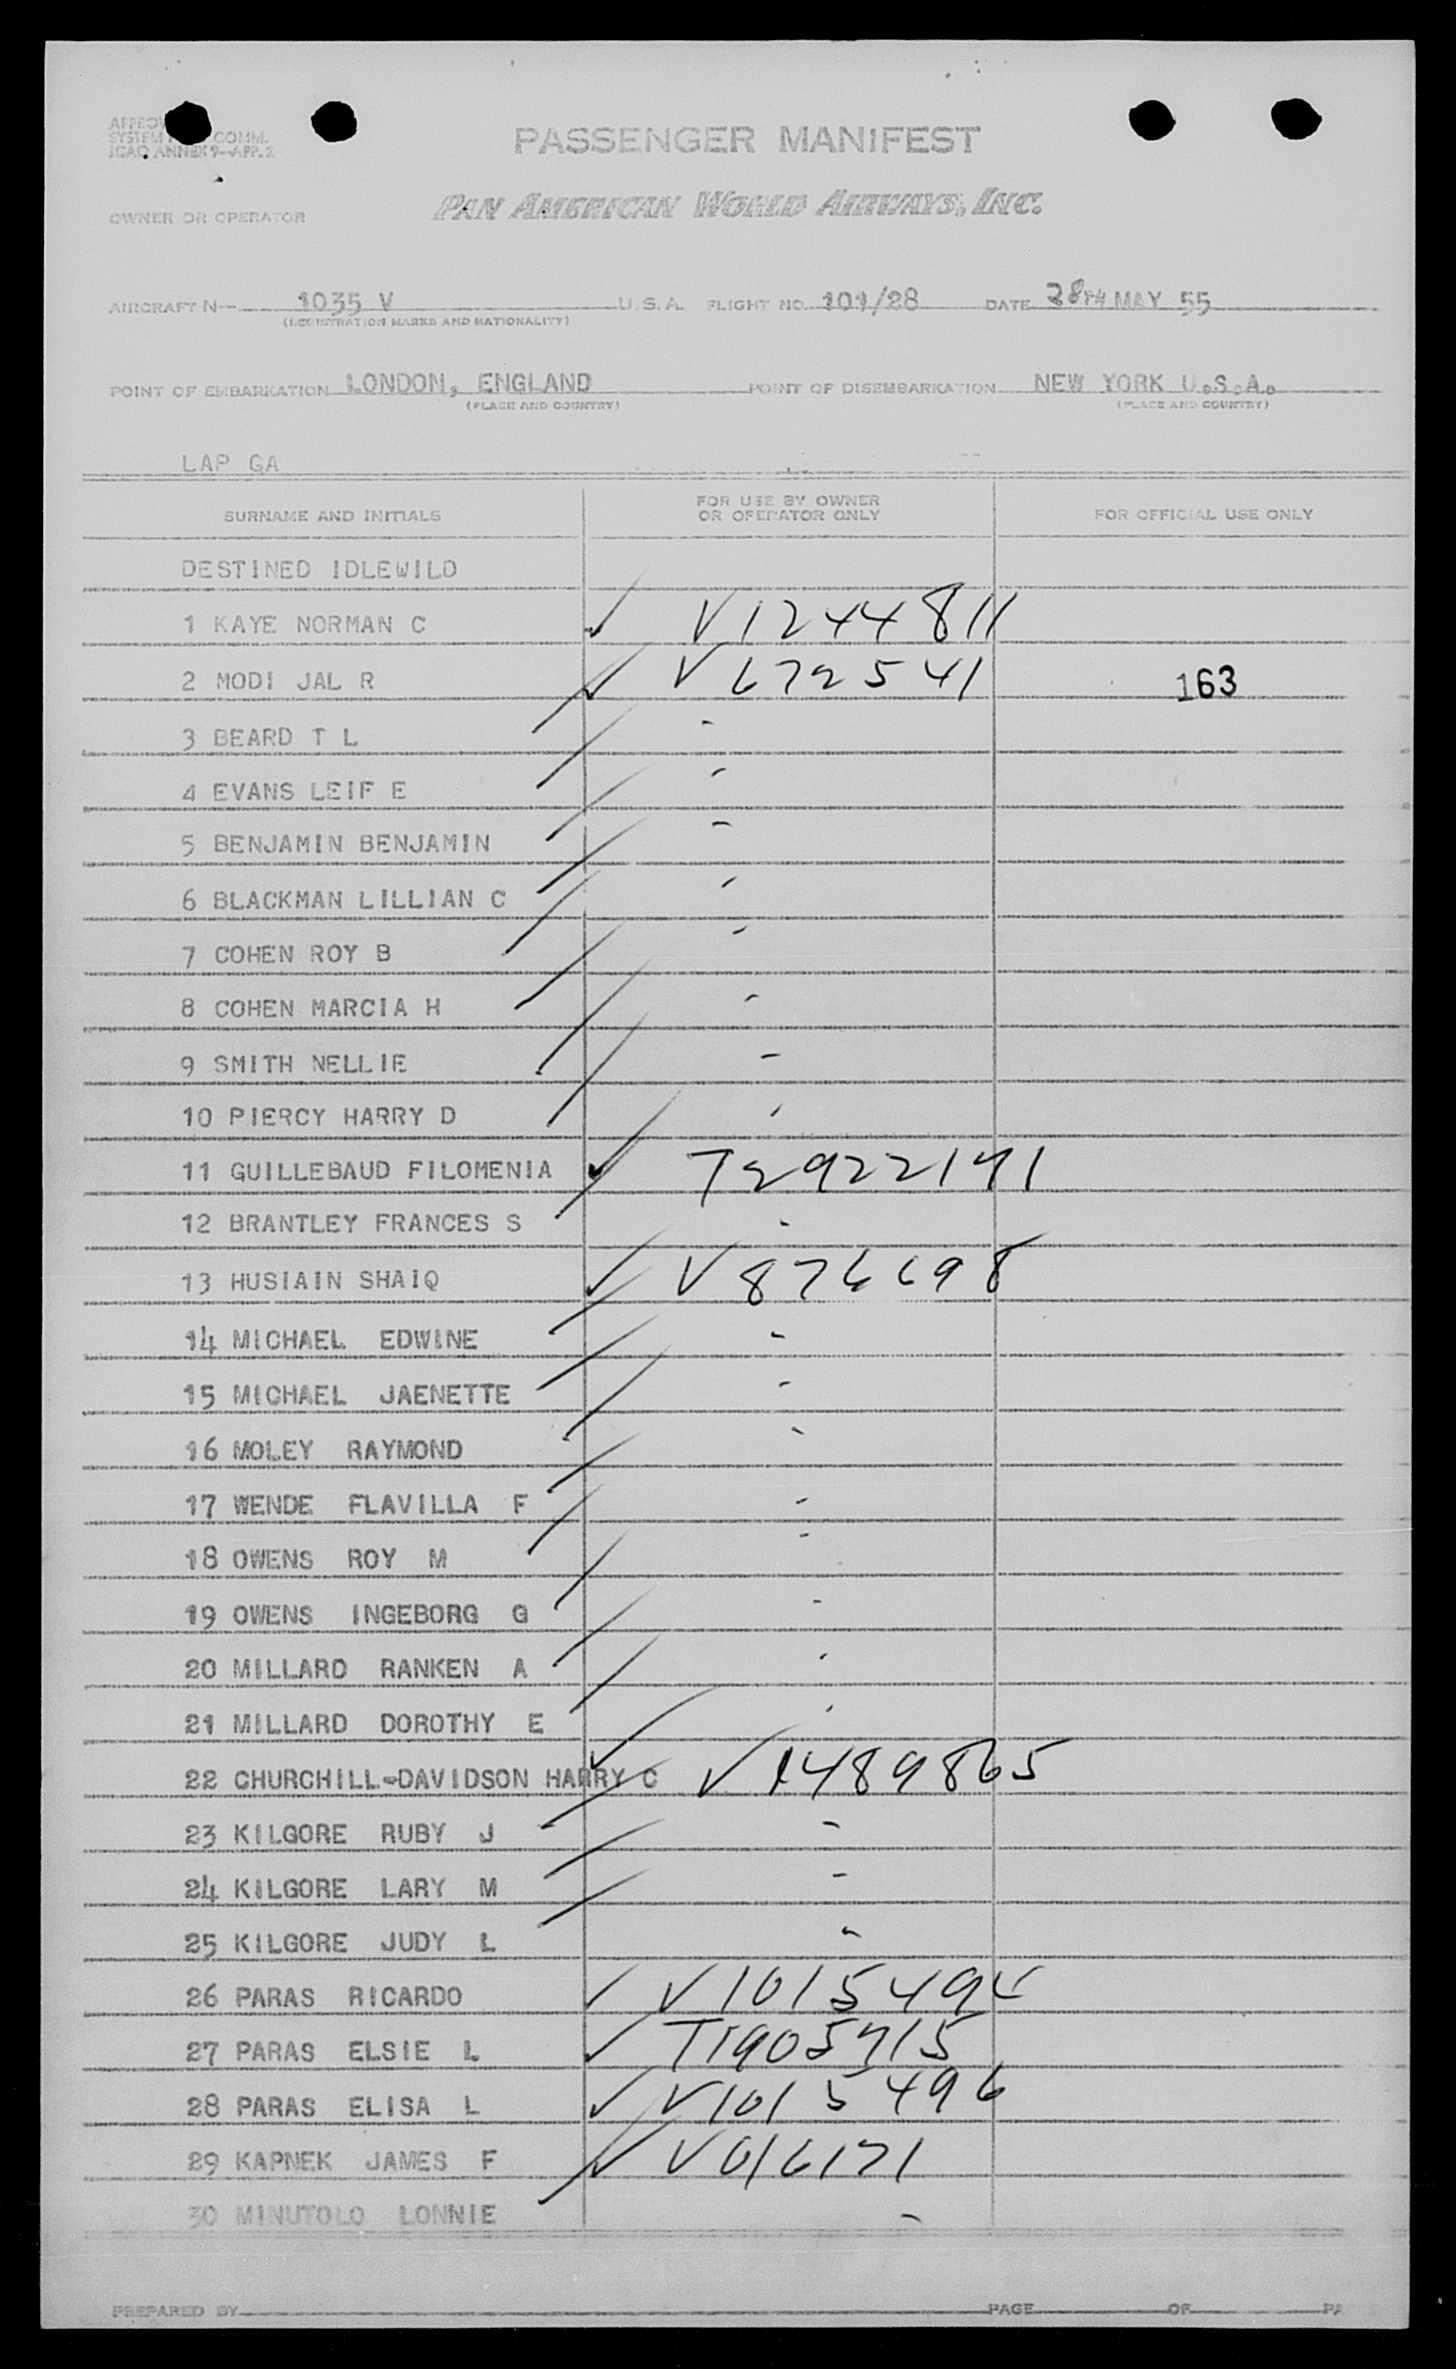 PASSENGER MANIFEST
SYSTEM COMM.
ICAO ANNEX 9-APP. 2
OWNER OR OPERATOR PAN AMERICAN WORLD AIRWAYS, INC.
AIRCRAFT N- 1035 V U. S. A. FLIGHT NO. 101/28 DATE 28TH MAY 55
(REGISTRATION MARKS AND NATIONALITY)
POINT OF EMBARKATION LONDON, ENGLAND POINT OF DISEMBARKATION NEW YORK U.S.A.
(PLACE AND COUNTRY) (PLACE AND COUNTRY)
LAP GA
SURNAME AND INITIALS FOR USE BY OWNER OR OPERATOR ONLY FOR OFFICIAL USE ONLY
DESTINED IDLEWILD
1 KAYE NORMAN C ✓ V1244811
2 MODI JAL R ✓ V 672541 163
3 BEARD T L -
4 EVANS LEIF E -
5 BENJAMIN BENJAMIN -
6 BLACKMAN LILLIAN C -
7 COHEN ROY B -
8 COHEN MARCIA H -
9 SMITH NELLIE -
10 PIERCY HARRY D -
11 GUILLEBAUD FILOMENIA ✓ T2922191
12 BRANTLEY FRANCES S -
13 HUSIAIN SHAIQ ✓ V876698
14 MICHAEL EDWINE -
15 MICHAEL JAENETTE -
16 MOLEY RAYMOND -
17 WENDE FLAVILLA F -
18 OWENS ROY M -
19 OWENS INGEBORG G -
20 MILLARD RANKEN A -
21 MILLARD DOROTHY E -
22 CHURCHILL-DAVIDSON HARRY C ✓ V1489865
23 KILGORE RUBY J -
24 KILGORE LARY M -
25 KILGORE JUDY L -
26 PARAS RICARDO ✓
27 PARAS ELSIE L ✓ T1905715
28 PARAS ELISA L ✓ V1015496
29 KAPNEK JAMES F ✓ V016171
30 MINUTOLO LONNIE -
PREPARED BY PAGE OF